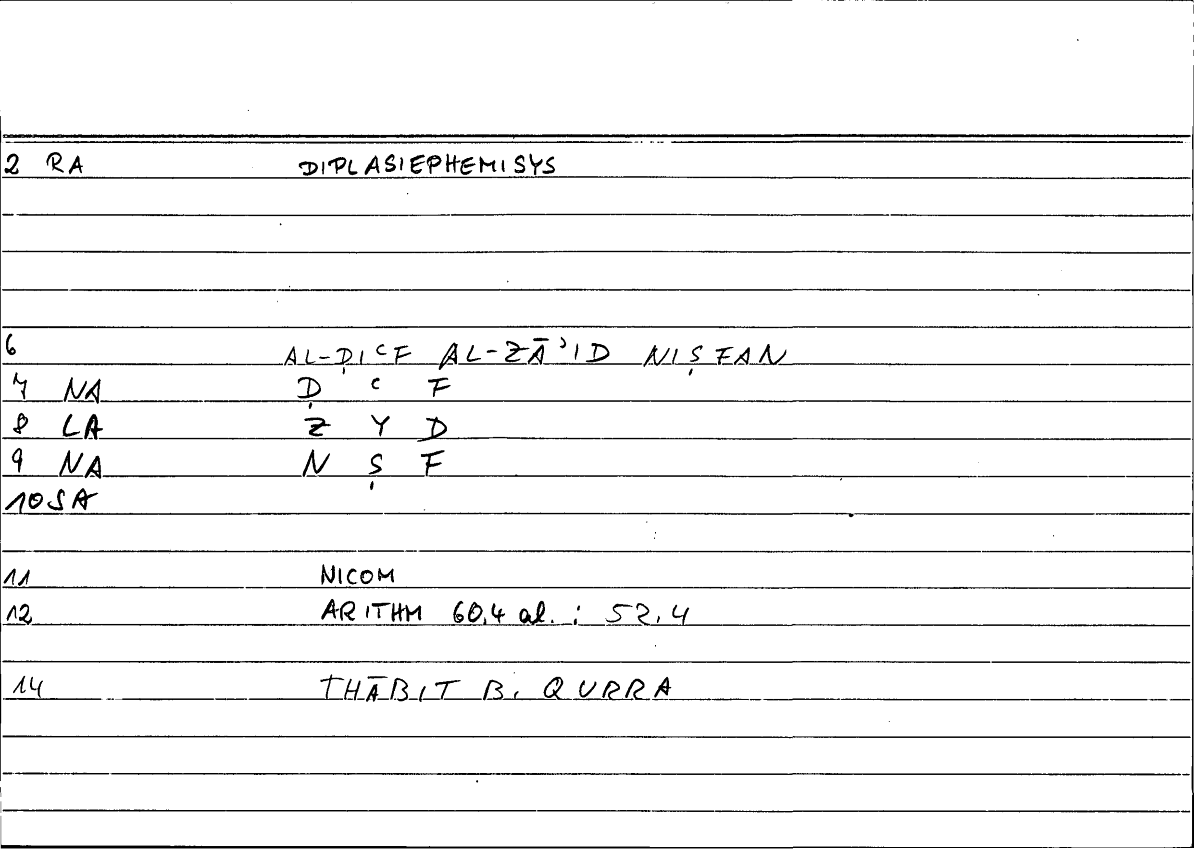 2 RA DIPLASIEPHEMISYS
6 AL-ḌIʿF AL-ZĀʾID NIṢFAN
7 NA Ḍ ʿ F
8 LA Z Y D
9 NA N Ṣ F
10 SA
11 NICOM
12 ARITHM 60,4 al. : 52,4
14 THĀBIT B. QURRA